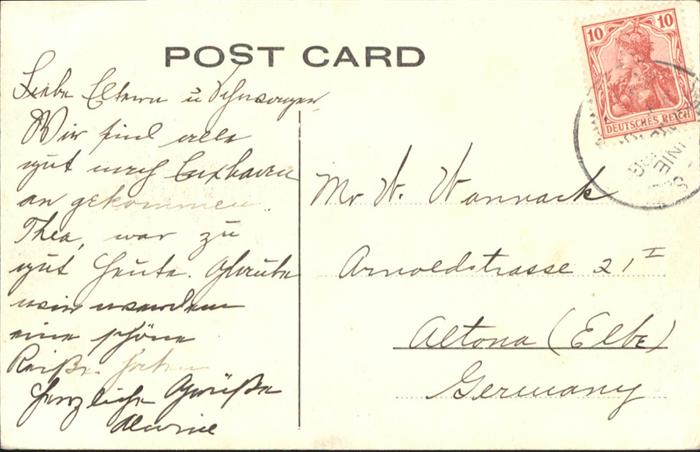 POST CARD
Liebe Eltern u
Wir sind alle
gut nach Cuxhaven
an gekommen.
Thea, war zu
gut Heute. Glaube
wir werden
eine schöne
Reiße haben
Herzliche Grüße
Alwine
Mr W. Wannack
Arnoldstrasse 21 I
Altona (Elbe)
Germany
10 10
DEUTSCHES REICH